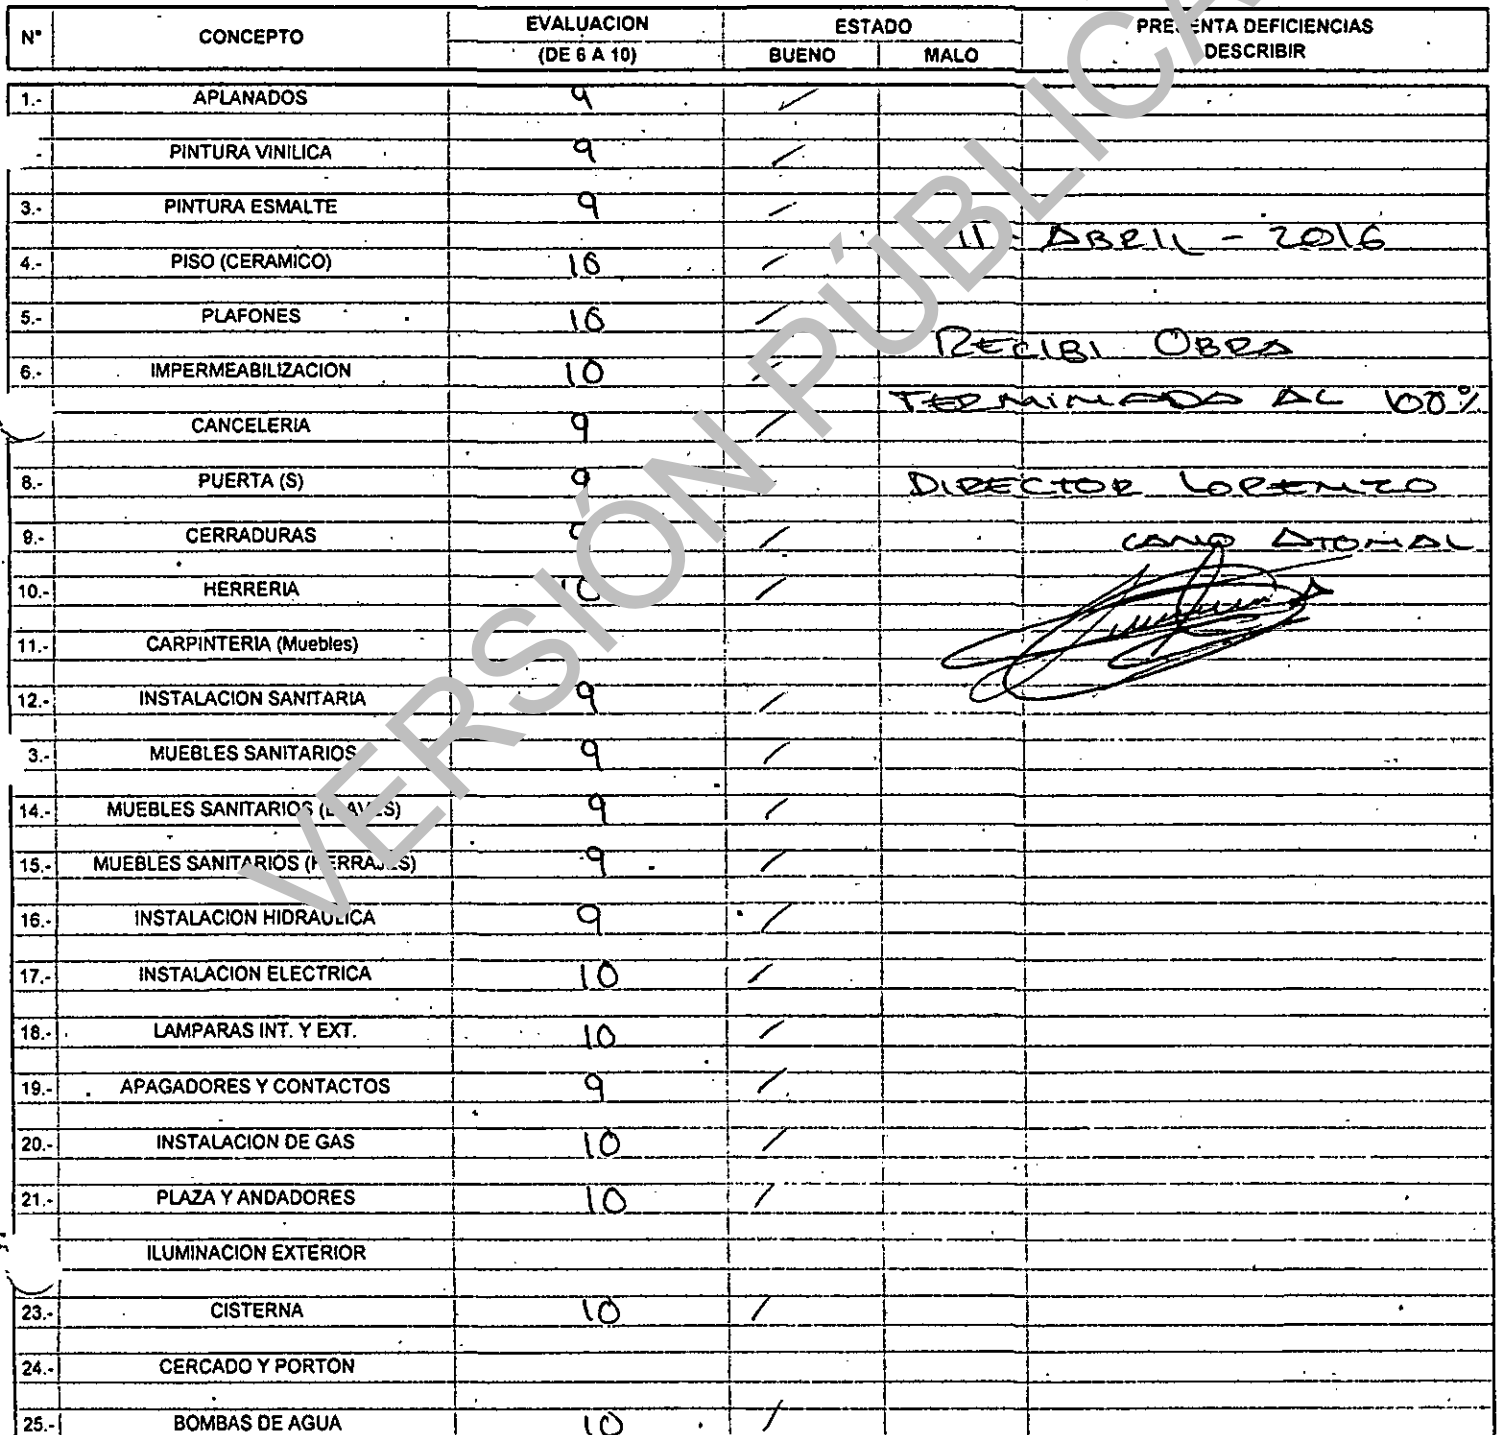 N° CONCEPTO EVALUACION ESTADO DEFICIENCIAS
(DE 6 A 10) BUENO MALO DESCRIBIR
1.- APLANADOS 9 /
PINTURA VINILICA 9 /
3.- PINTURA ESMALTE 9 /
11 - ABRIL - 2016
4.- PISO (CERAMICO) 10 /
5.- PLAFONES 10 /
RECIBI OBRA
6.- IMPERMEABILIZACION 10 /
TERMINADA AL 100%
CANCELERIA 9 /
8.- PUERTA (S) 9 / DIRECTOR LORENZO
9.- CERRADURAS 9 / CANO ATONAL
10.- HERRERIA 10 /
11.- CARPINTERIA (Muebles)
12.- INSTALACION SANITARIA 9 /
3.- MUEBLES SANITARIOS 9 /
14.- MUEBLES SANITARIOS (LLAVES) 9 /
15.- MUEBLES SANITARIOS (HERRAJES) 9 /
16.- INSTALACION HIDRAULICA 9 /
17.- INSTALACION ELECTRICA 10 /
18.- LAMPARAS INT. Y EXT. 10 /
19.- APAGADORES Y CONTACTOS 9 /
20.- INSTALACION DE GAS 10 /
21.- PLAZA Y ANDADORES 10 /
ILUMINACION EXTERIOR
23.- CISTERNA 10 /
24.- CERCADO Y PORTON
25.- BOMBAS DE AGUA 10 /
VERSIÓN PÚBLICA